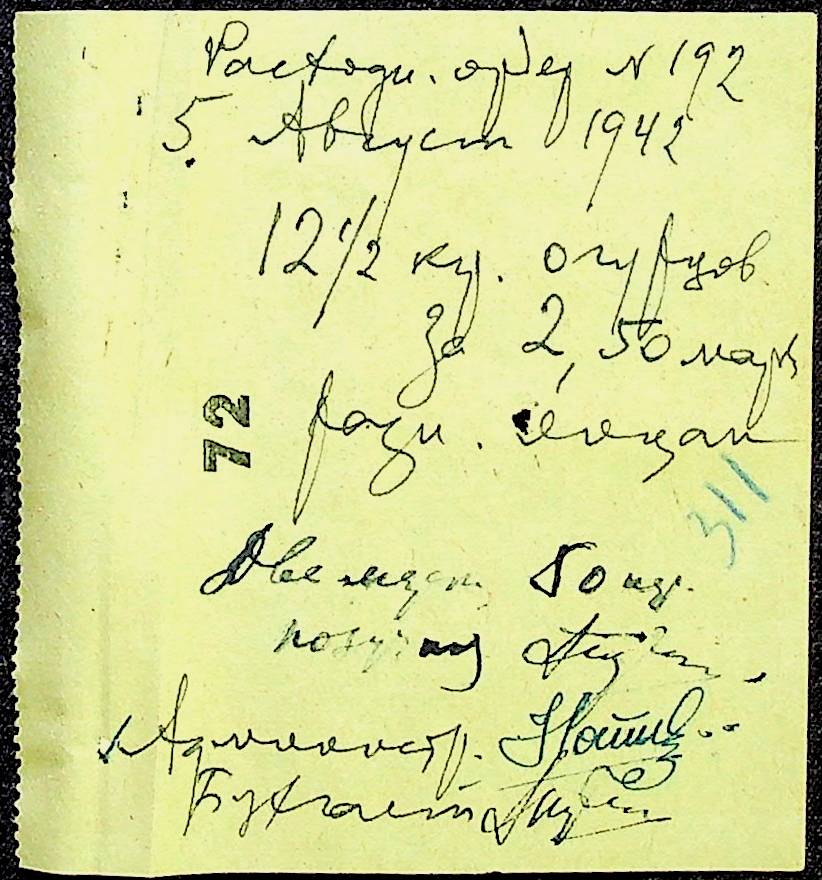 Расходн. ордер N 192
5. Август 1942
12 1/2 кг. огурцов
за 2,50 марк
72
311
Две марк. 50 пф.
получил
Администр.
Бухгалт